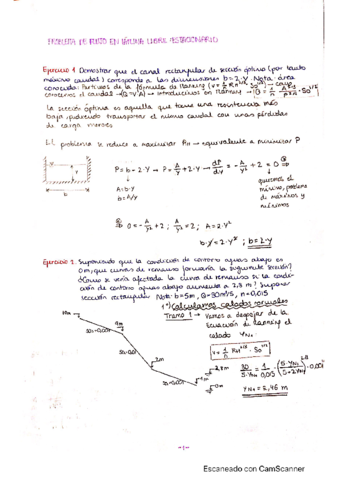 PROBLEMA DE FLUJO EN LÁMINA LIBRE ESTACIONARIO
Ejercicio 1 Demostrar que el canal rectangular de sección óptima (por tanto
máximo caudal) corresponde a las dimensiones b=2·y. Nota: área
conocida. Partimos de la fórmula de Manning (v = 1/n Rh^2/3 · So^1/2) → como
conocemos el caudal → (Q=V·A) → introducimos en Manning → Q =
La sección óptima es aquella que tiene una resistencia más
baja, pudiendo transportar el mismo caudal con unas pérdidas
de carga menores
El problema se reduce a maximizar RH → equivalente a minimizar P
P = b + 2·y → P = A/y + 2·y → dP/dy = -A/y² + 2 = 0
A = b·y
b = A/y
queremos el
mínimo, problema
de máximos y
mínimos
0 = -A/y² + 2 ; A/y² = 2 ; A = 2·y²
b·y = 2·y² ; b = 2·y
Ejercicio 2. Suponiendo que la condición de contorno aguas abajo es
0m, que curvas de remanso formaría la siguiente sección?
¿Cómo se vería afectada la curva de remanso si la condi-
ción de contorno aguas abajo aumenta a 2,8 m? Supone
sección rectangular. Nota: b=5m, Q=30m³/s, n=0,015
1º) Calculamos calados normales
Tramo 1 → Vamos a despejar de la
Ecuación de Manning el
calado yN1
v = 1/n · RH^2/3 · So^1/2
yN1 = 2,46 m
10m
9m
2m
2,8m
0m
-1-
Escaneado con CamScanner